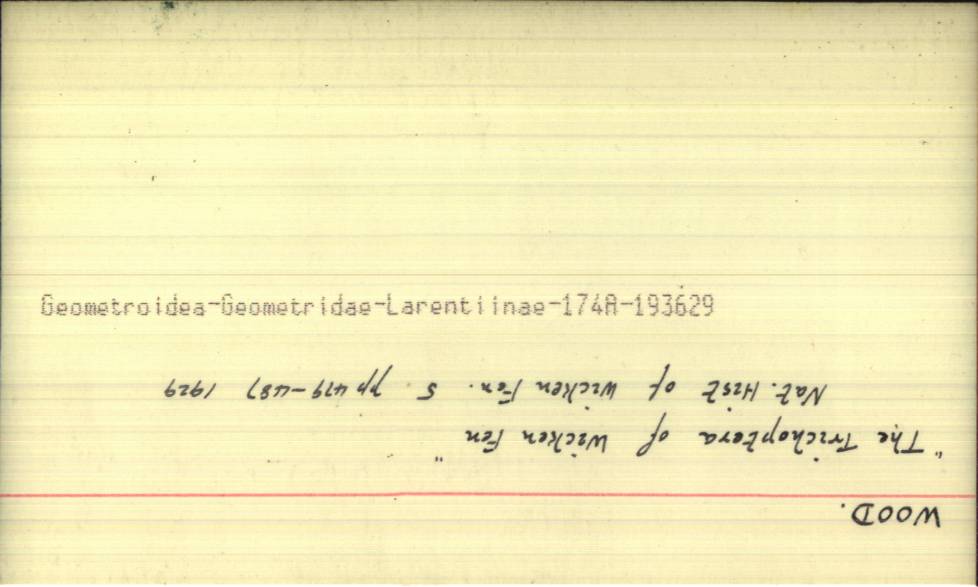 Geometroidea-Geometridae-Larentiinae-174A-193629
WOOD.
"The Trichoptera of Wicken Fen"
Nat. Hist of Wicken Fen. 5 pp 479-487 1929